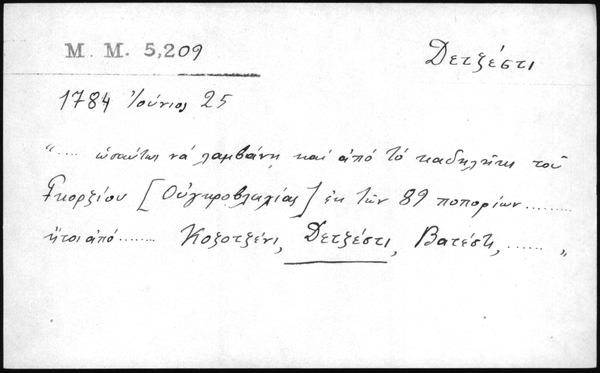 Μ. Μ. 5,209
Δετζέστι
1784 Ἰούνιος 25
"..... ὡσαύτως νά λαμβάνῃ καί ἀπό τό καδηλήκι τοῦ
Γκορζίου [Οὐγκροβλαχίας] ἐκ τῶν 89 ποπορίων .........
ἤτοι ἀπό ........ Κοζοτζένι, Δετζέστι, Βατέστι, ...... "